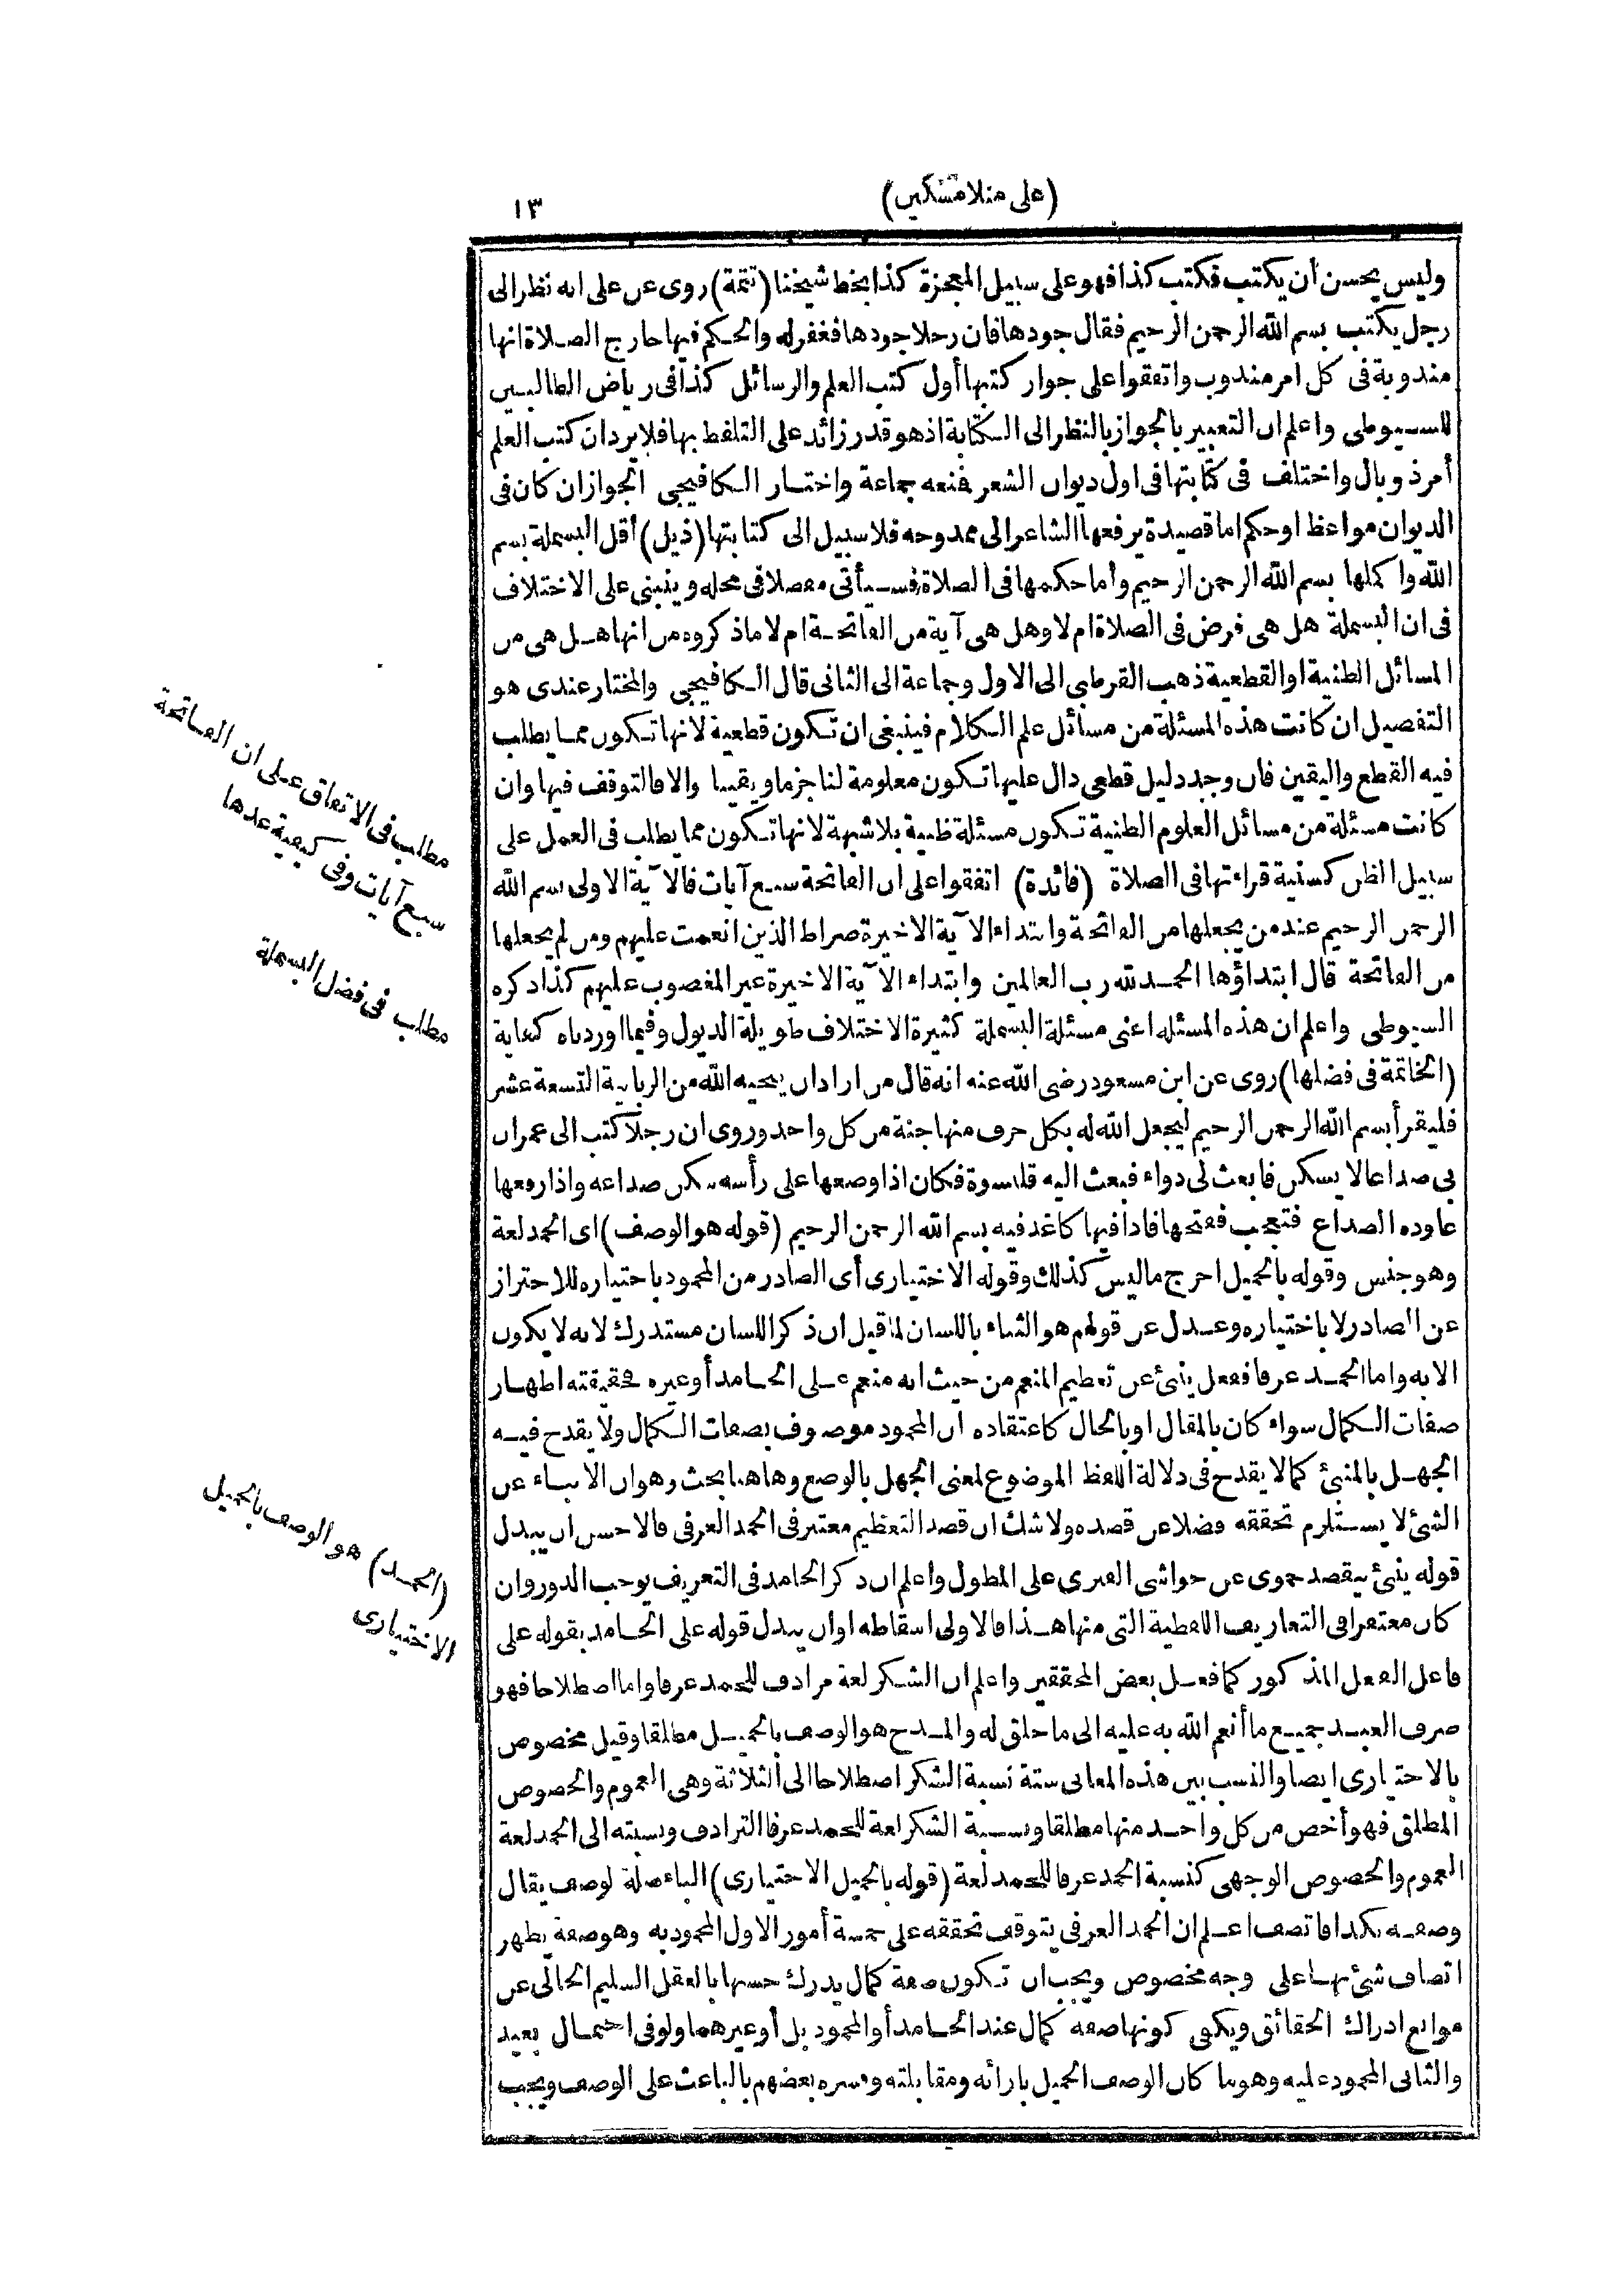 (على منلا مسكين)
١٣
وليس يحسن أن يكتب فكتب كذا فهو على سبيل المعجزة كذا بخط شيخنا (تتمة) روى عن على انه نظر الى
رجل يكتب بسم الله الرحمن الرحيم فقال جودها فان رجلا جودها فغفر له والحكم فيها خارج الصلاة انها
مندوبة فى كل امر مندوب واتفقوا على جواز كتبها أول كتب العلم والرسائل كذا فى رياض الطالبين
للسيوطى واعلم ان التعبير بالجواز بالنظر الى الكتابة اذ هو قدر زائد على التلفظ بها فلا يرد ان كتب العلم
أمر ذو بال واختلف فى كتابتها فى اول ديوان الشعر فمنعه جماعة واختار الكافيجى الجواز ان كان فى
الديوان مواعظ او حكم اما قصيدة يرفعها الشاعر الى ممدوحه فلا سبيل الى كتابتها (ذيل) أقل البسملة بسم
الله واكملها بسم الله الرحمن الرحيم وأما حكمها فى الصلاة فسيأتى مفصلا فى محله وينبنى على الاختلاف
فى ان البسملة هل هى فرض فى الصلاة ام لا وهل هى آية من الفاتحة ام لا ما ذكروه من انها هل هى من
المسائل الظنية او القطعية ذهب القرطبى الى الاول وجماعة الى الثانى قال الكافيجى والمختار عندى هو
التفصيل ان كانت هذه المسئلة من مسائل علم الكلام فينبغى ان تكون قطعية لانها تكون مما يطلب
فيه القطع واليقين فان وجد دليل قطعى دال عليها تكون معلومة لنا جزما ويقينا والا فالتوقف فيها وان
كانت مسئلة من مسائل العلوم الظنية تكون مسئلة ظنية بلا شبهة لانها تكون مما يطلب فى العمل على
سبيل الظن كسنية قراءتها فى الصلاة (فائدة) اتفقوا على ان الفاتحة سبع آيات فالآية الاولى بسم الله
الرحمن الرحيم عند من يجعلها من الفاتحة وابتداء الآية الاخيرة صراط الذين انعمت عليهم ومن لم يجعلها
من الفاتحة قال ابتداؤها الحمد لله رب العالمين وابتداء الآية الاخيرة غير المغضوب عليهم كذا ذكره
السيوطى واعلم ان هذه المسئله اعنى مسئلة البسملة كثيرة الاختلاف طويلة الذيول وفيما اوردناه كفاية
(الخاتمة فى فضلها) روى عن ابن مسعود رضى الله عنه انه قال من اراد ان ينجيه الله من الزبانية التسعة عشر
فليقرأ بسم الله الرحمن الرحيم ليجعل الله له بكل حرف منها جنة من كل واحد وروى ان رجلا كتب الى عمر ان
بى صداعا لا يسكن فابعث لى دواء فبعث اليه قلنسوة فكان اذا وضعها على رأسه سكن صداعه واذا رفعها
عاوده الصداع فتعجب ففتحها فاذا فيها كاغد فيه بسم الله الرحمن الرحيم (قوله هو الوصف) اى الحمد لغة
وهو جنس وقوله بالجميل اخرج ما ليس كذلك وقوله الاختيارى أى الصادر من المحمود باختياره للاحتراز
عن الصادر لا باختياره وعدل عن قولهم هو الثناء باللسان لما قيل ان ذكر اللسان مستدرك لانه لا يكون
الا به واما الحمد عرفا ففعل ينبئ عن تعظيم المنعم من حيث انه منعم على الحامد أو غيره فحقيقته اظهار
صفات الكمال سواء كان بالمقال او بالحال كاعتقاده ان المحمود موصوف بصفات الكمال ولا يقدح فيه
الجهل بالمنبئ كما لا يقدح فى دلالة اللفظ الموضوع لمعنى الجهل بالوضع وهاهنا بحث وهو ان الانباء عن
الشئ لا يستلزم تحققه فضلا عن قصده ولا شك ان قصد التعظيم معتبر فى الحمد العرفى فالاحسن ان يبدل
قوله ينبئ بيقصد حموى عن حواشى الفنرى على المطول واعلم ان ذكر الحامد فى التعريف يوجب الدور وان
كان مغتفرا فى التعاريف اللفظية التى منها هذا فالاولى اسقاطه او ان يبدل قوله على الحامد بقوله على
فاعل الفعل المذكور كما فعل بعض المحققين واعلم ان الشكر لغة مرادف للحمد عرفا واما اصطلاحا فهو
صرف العبد جميع ما أنعم الله به عليه الى ما خلق له والمدح هو الوصف بالجميل مطلقا وقيل مخصوص
بالاختيارى ايضا والنسب بين هذه المعانى ستة نسبة الشكر اصطلاحا الى الثلاثة وهى العموم والخصوص
المطلق فهو أخص من كل واحد منها مطلقا ونسبة الشكر لغة للحمد عرفا الترادف ونسبته الى الحمد لغة
العموم والخصوص الوجهى كنسبة الحمد عرفا للحمد لغة (قوله بالجميل الاختيارى) الباء صلة لوصف يقال
وصفه بكذا فاتصف اعلم ان الحمد العرفى يتوقف تحققه على خمسة أمور الاول المحمود به وهو صفة يظهر
اتصاف شئ بها على وجه مخصوص ويجب ان تكون صفة كمال يدرك حسنها بالعقل السليم الخالى عن
موانع ادراك الحقائق ويكفى كونها صفه كمال عند الحامد أو المحمود بل أو غيرهما ولو فى احتمال بعيد
والثانى المحمود عليه وهو ما كان الوصف الجميل بازائه ومقابلته وفسره بعضهم بالباعث على الوصف ويجب
مطلب فى الاتفاق على ان الفاتحة
سبع آيات وفى كيفية عدها
مطلب فى فضل البسملة
(الحمد) هو الوصف بالجميل
الاختيارى